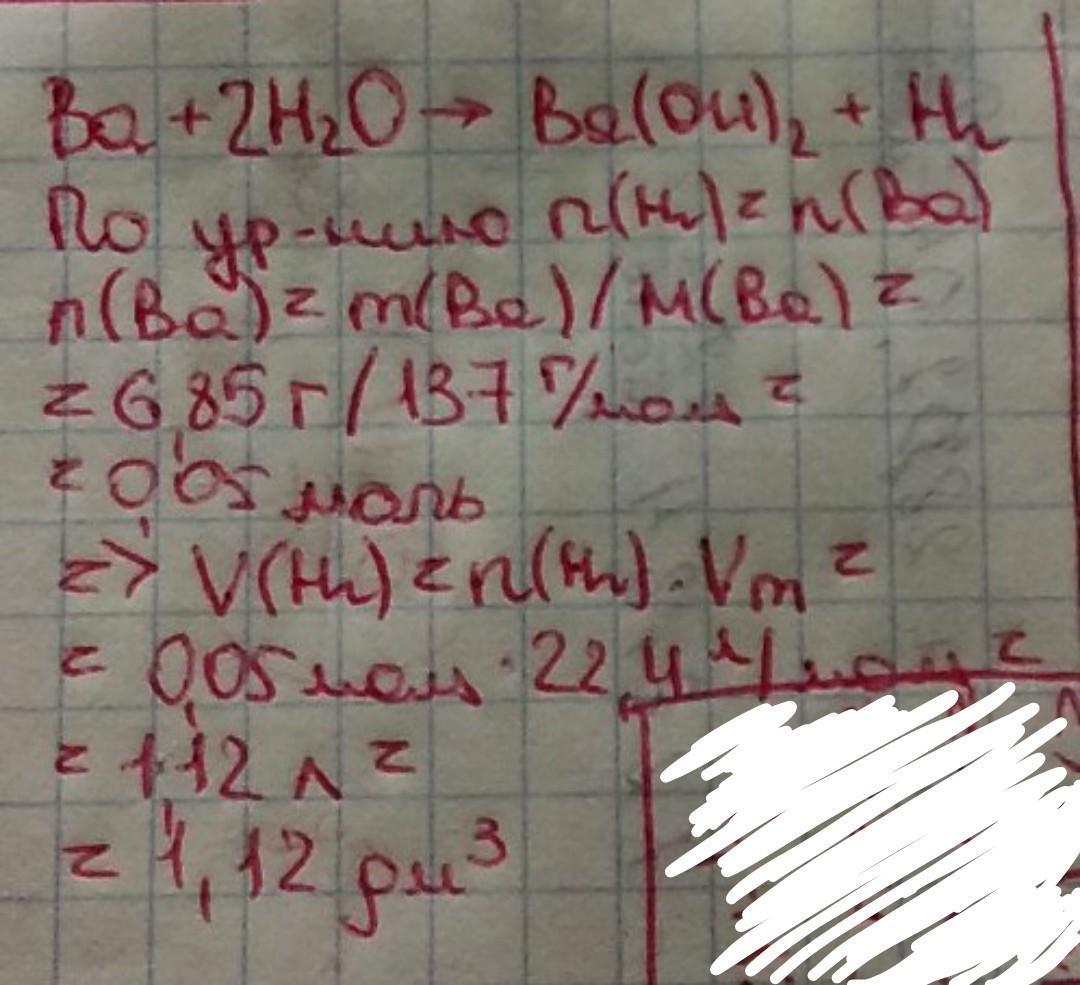 Ba + 2H₂O → Ba(OH)₂ + H₂
По ур-нию n(H₂) = n(Ba)
n(Ba) = m(Ba) / M(Ba) =
= 6,85 г / 137 г/моль =
= 0,05 моль
=> V(H₂) = n(H₂) · Vm =
= 0,05 моль · 22,4 л/моль =
= 1,12 л =
= 1,12 дм³